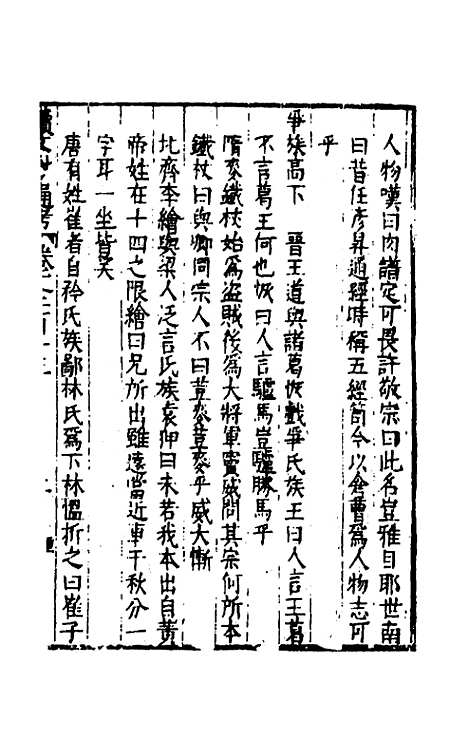 人物嘆曰肉譜定可畏許敬宗曰此名豈雅目耶世南
曰昔任彥昇通經時稱五經笥今以倉曹爲人物志可
乎
爭族高下　晉王道與諸葛恢戲爭氏族王曰人言王葛
不言葛王何也恢曰人言驢馬豈驢勝馬乎
隋麥鐵杖始爲盜賊後爲大將軍竇威問其宗何所本
鐵杖曰與卿同宗人不曰荳麥荳麥乎威大慚
北齊李繪與梁人泛言氏族袁狎曰未若我本出自黃
帝姓在十四之限繪曰兄所出雖遠當近車千秋分一
字耳一坐皆笑
唐有姓崔者自矜氏族鄙林氏爲下林慍折之曰崔子
續文獻通考　卷之二百十三